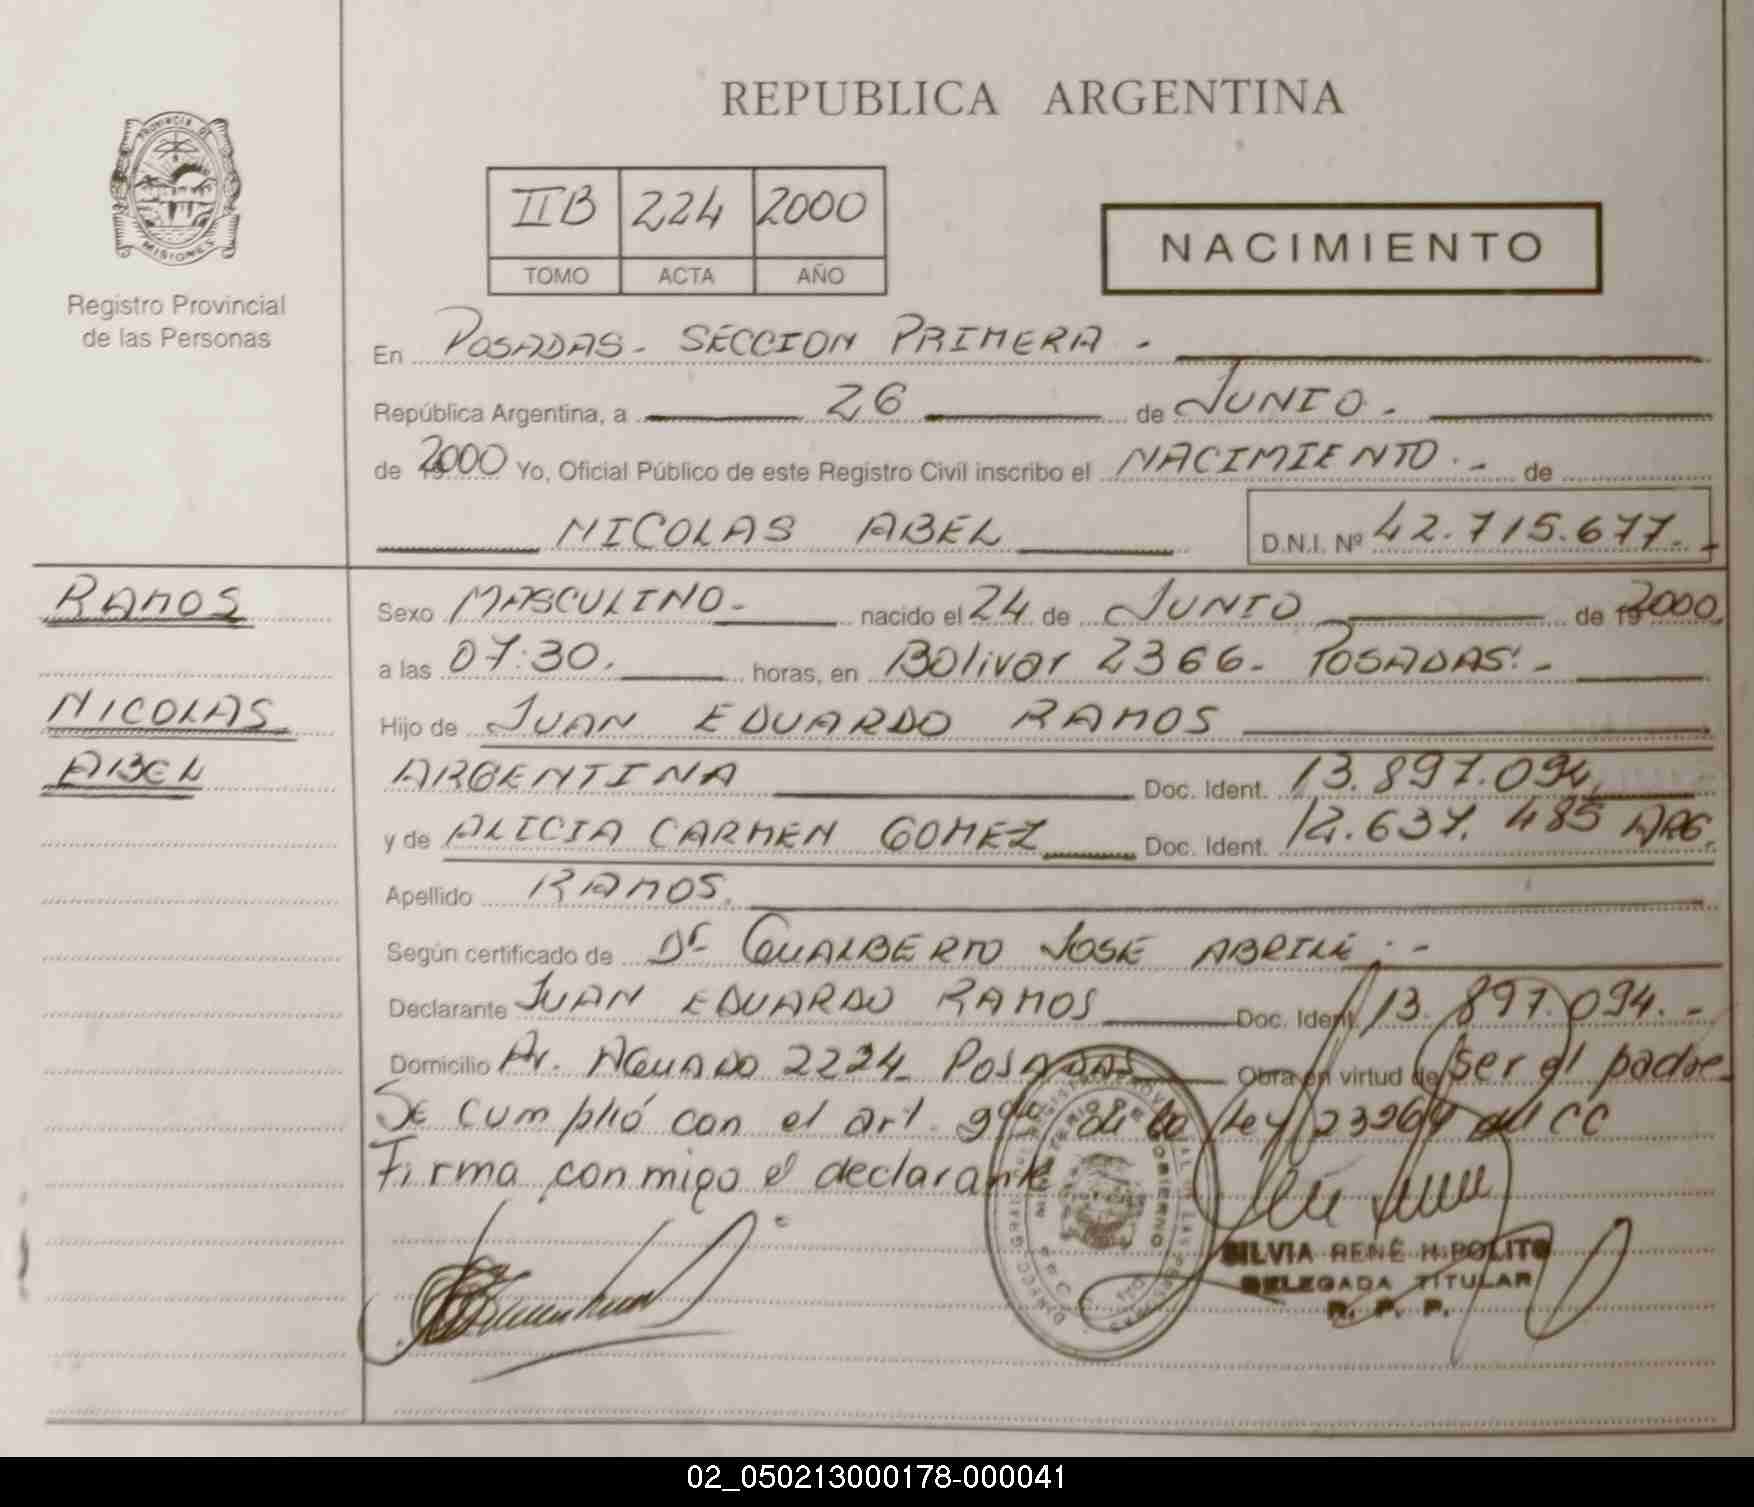 REPUBLICA ARGENTINA
PROVINCIA DE
MISIONES
Registro Provincial
de las Personas
IIB 224 2000
TOMO ACTA AÑO
NACIMIENTO
En POSADAS - SECCION PRIMERA -
República Argentina, a 26 de JUNIO.
de 2000 Yo, Oficial Público de este Registro Civil inscribo el NACIMIENTO.- de
NICOLAS ABEL D.N.I. Nº 42.715.677.-
RAMOS
NICOLAS
ABEL
Sexo MASCULINO.- nacido el 24 de JUNIO de 19 2000.
a las 07:30. horas, en Bolivar 2366- POSADAS.-
Hijo de JUAN EDUARDO RAMOS
ARGENTINA Doc. Ident. 13.897.094.
y de ALICIA CARMEN GOMEZ Doc. Ident. 12.637.485 ARG.
Apellido RAMOS.
Según certificado de Dr GUALBERTO JOSE ABRILE.-
Declarante JUAN EDUARDO RAMOS Doc. Ident. 13.897.094.-
Domicilio Av. AGUADO 2224- POSADAS Obra en virtud de ser el padre-
Se cumplió con el art. de la Ley 23264 del CC
Firma conmigo el declarante
SILVIA RENÉ HIPOLITO
DELEGADA TITULAR
R. P. P.
02_050213000178-000041